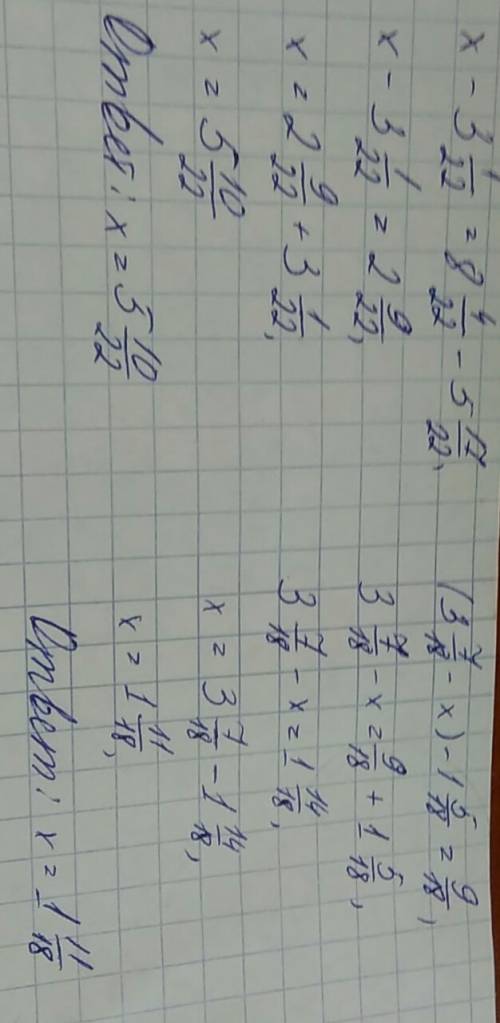 x - 3 1/22 = 8 4/22 - 5 17/22,
x - 3 1/22 = 2 9/22,
x = 2 9/22 + 3 1/22,
x = 5 10/22
Ответ: x = 5 10/22
(3 7/18 - x) - 1 5/18 = 9/18,
3 7/18 - x = 9/18 + 1 5/18,
3 7/18 - x = 1 14/18,
x = 3 7/18 - 1 14/18,
x = 1 11/18,
Ответ: x = 1 11/18